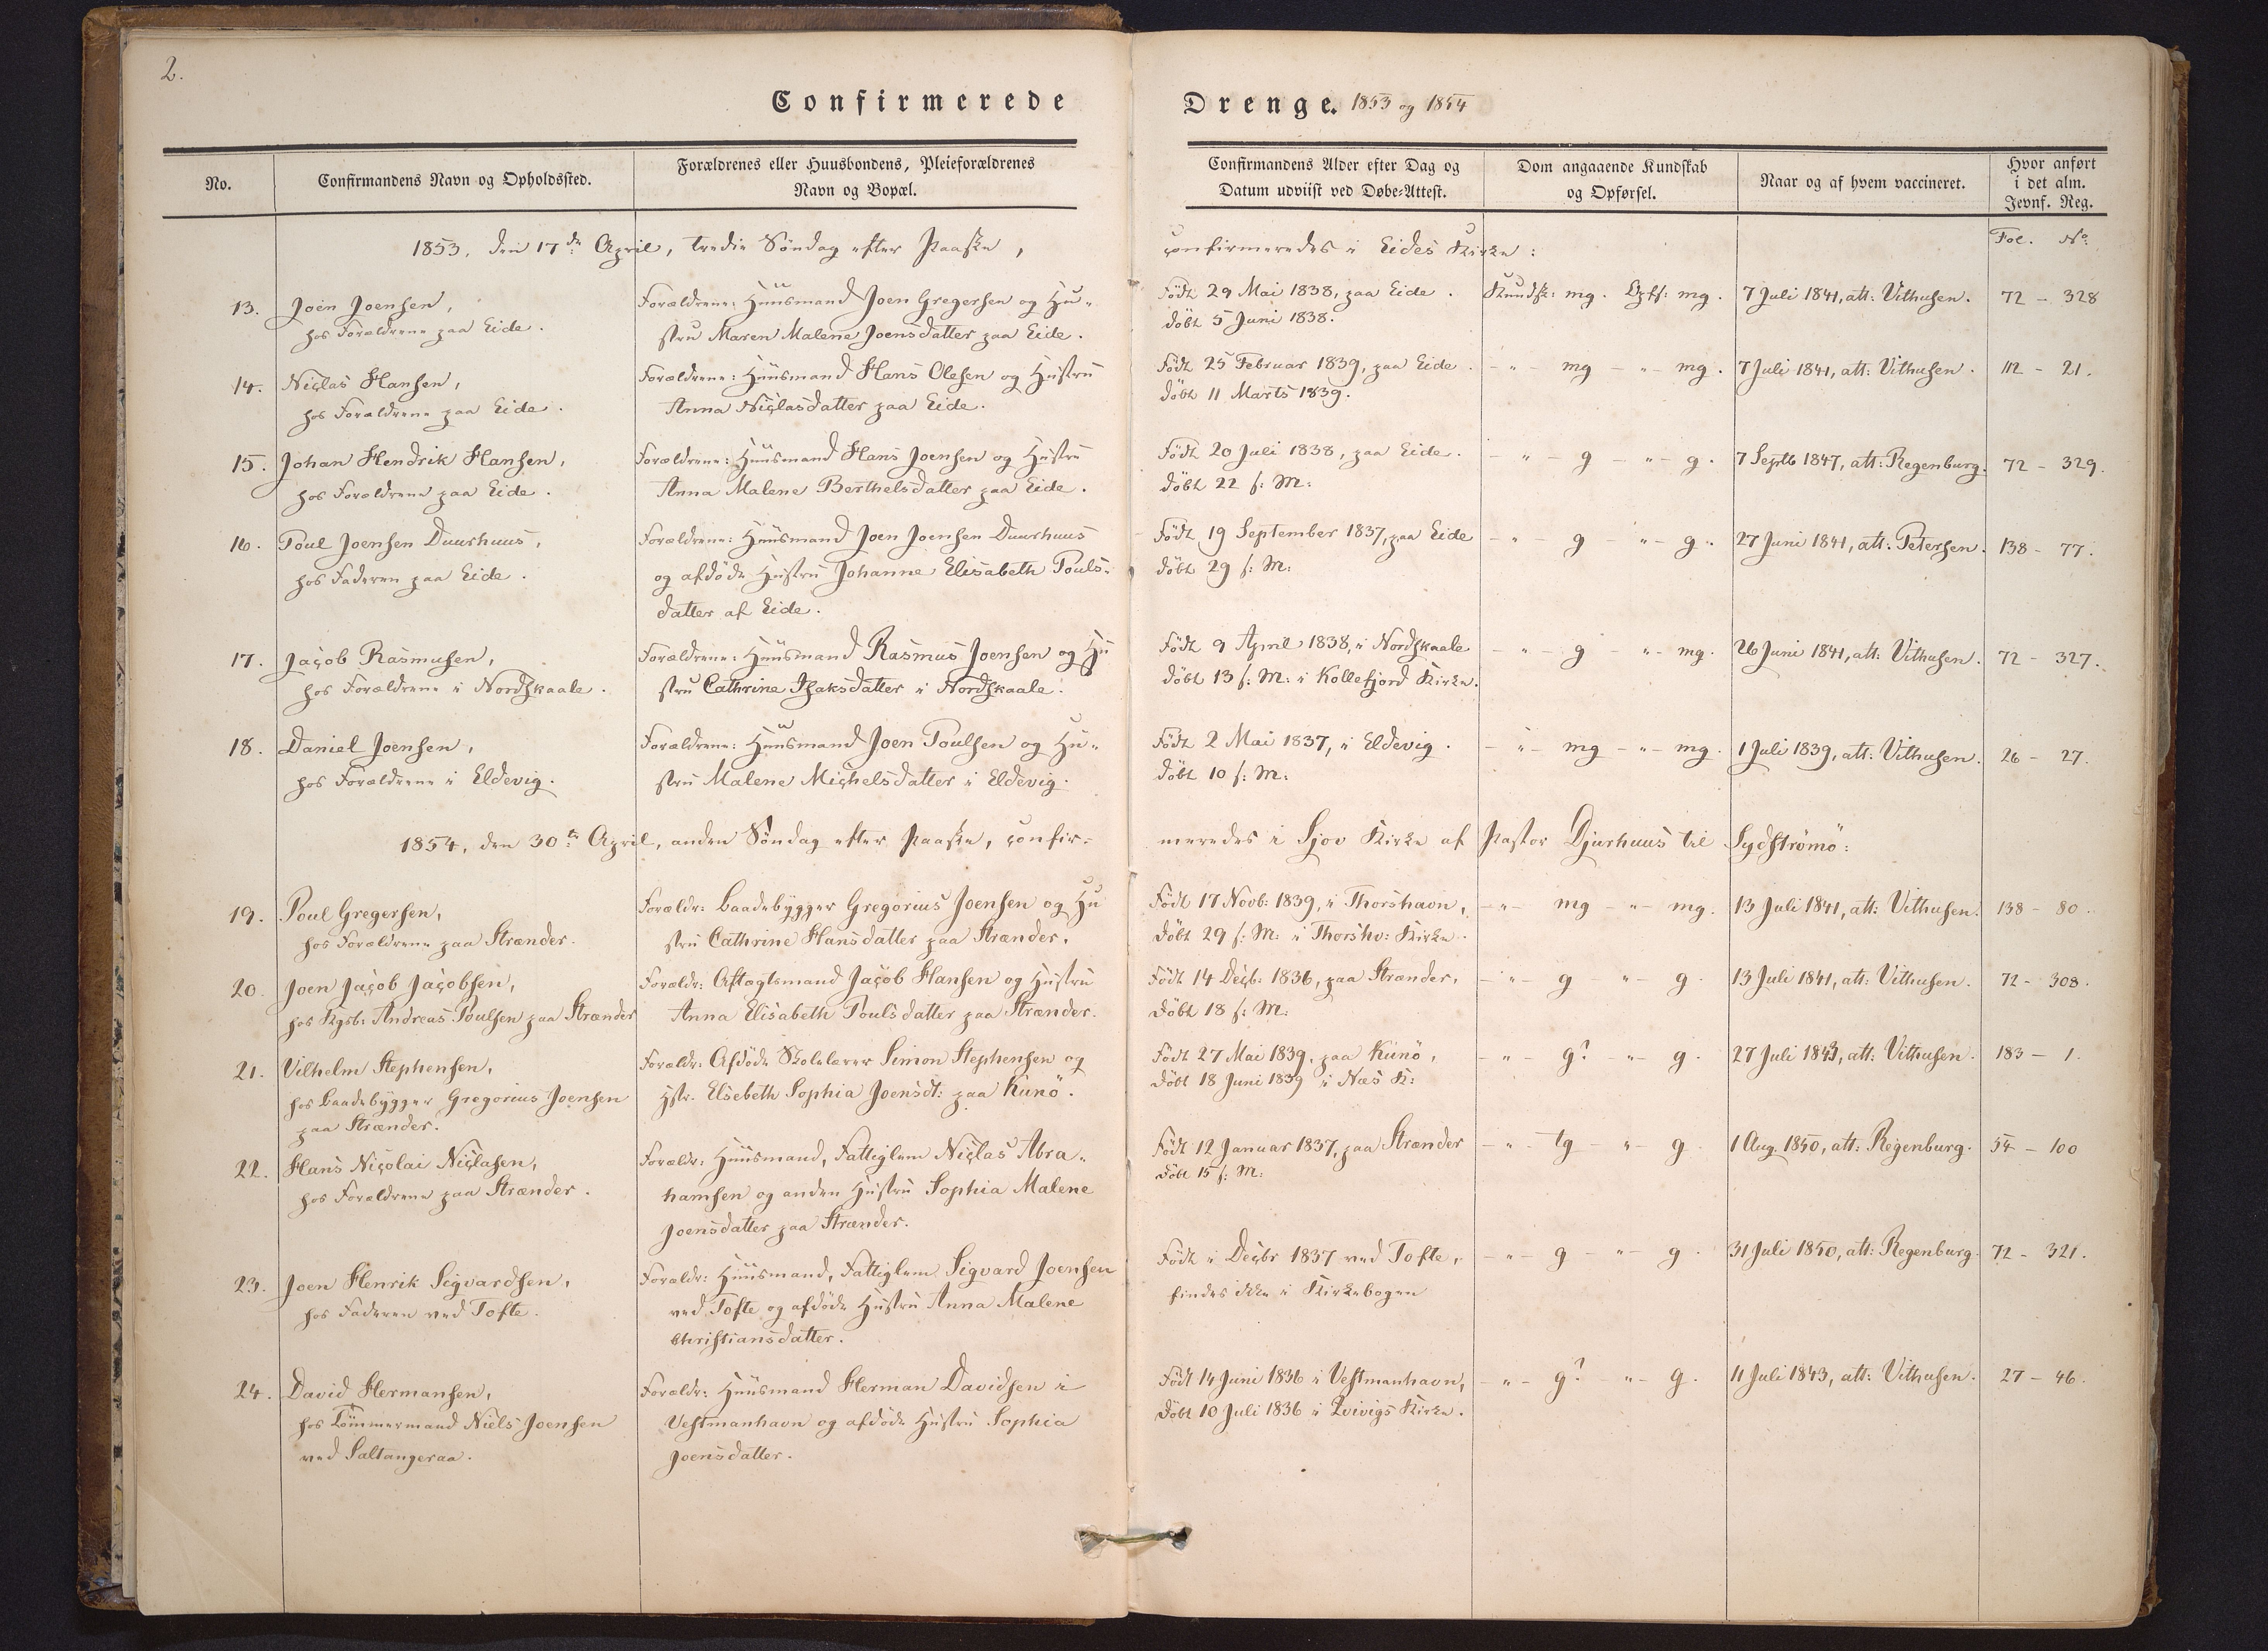 2.
Confirmerede
Drenge. 1853 og 1854
No.
Confirmandens Navn og Opholdssted.
Forældrenes eller Huusbondens, Pleieforældrenes
Navn og Bopæl.
Confirmandens Alder efter Dag og
Datum udviist ved Døbe-Attest.
Dom angaaende Kundskab
og Opførsel.
Naar og af hvem vaccineret.
Hvor anført
i det alm.
Jevnf. Reg.
Fol. No
1853, den 17de April, tredie Söndag efter Paaske,
confirmeredes i Eides Kirke:
13.
Joen Joensen,
hos Forældrene paa Eide.
Forældrene: Huusmand Joen Gregersen og Hu-
stru Maren Malene Joensdatter paa Eide.
Født 29 Mai 1838, paa Eide.
döbt 5 Juni 1838.
Kundsk: mg. Opf: mg.
7 Juli 1841, att: Vithusen.
72 - 328
14.
Niclas Hansen,
hos Forældrene paa Eide.
Forældrene: Huusmand Hans Olesen og Hustru
Anna Niclasdatter paa Eide.
Födt 25 Februar 1839, paa Eide.
döbt 11 Marts 1839.
- " - mg - " - mg.
7 Juli 1841, att: Vithusen.
112 - 21.
15.
Johan Hendrik Hansen,
hos Forældrene paa Eide.
Forældrene: Huusmand Hans Joensen og Hustru
Anna Malene Berthelsdatter paa Eide.
Födt 20 Juli 1838, paa Eide.
döbt 22 s: M:
- " - g - " - g.
7 Septb 1847, att: Regenburg.
72 - 329.
16.
Poul Joensen Duurhuus,
hos Faderen paa Eide.
Forældrene: Huusmand Joen Joensen Duurhuus
og afdöde Hustru Johanne Elisabeth Pouls-
datter af Eide.
Födt 19 September 1837, paa Eide
döbt 29 s: M:
- " - g - " - g.
27 Juni 1841, att: Petersen.
138 - 77.
17.
Jacob Rasmusen,
hos Forældrene i Nordskaale.
Forældrene: Huusmand Rasmus Joensen og Hu
stru Cathrine Isaksdatter i Nordskaale.
Födt 9 April 1838, i Nordskaale
döbt 13 s: M: i Kollefjord Kirke.
- " - g - " - mg.
26 Juni 1841, att: Vithusen.
72 - 327.
18.
Daniel Joensen,
hos Forældrene i Eldevig.
Forældrene: Huusmand Joen Poulsen og Hu-
stru Malene Michelsdatter i Eldevig.
Födt 2 Mai 1837, i Eldevig.
döbt 10 s: M:
- " - mg - " - mg.
1 Juli 1839, att: Vithusen.
26 - 27.
1854, den 30te April, anden Söndag efter Paaske, confir-
meredes i Sjov Kirke af Pastor Djurhuus til Sydströmö:
19.
Poul Gregersen,
hos Forældrene paa Strænder.
Forældr: Baadebygger Gregorius Joensen og Hu
stru Cathrine Hansdatter paa Strænder.
Födt 17 Novb: 1839, i Thorshavn,
döbt 29 s: M: i Thorshv: Kirke.
- " - mg - " - mg.
13 Juli 1841, att: Vithusen.
138 - 80.
20.
Joen Jacob Jacobsen,
hos Kgsb: Andreas Poulsen paa Strænder
Forældr: Aftægtsmand Jacob Hansen og Hustru
Anna Elisabeth Poulsdatter paa Strænder.
Födt 14 Decb: 1836, paa Strænder,
döbt 18 s: M:
- " - g " - g.
13 Juli 1841, att: Vithusen.
72 - 308.
21.
Vilhelm Stephensen,
hos Baadebygger Gregorius Joensen
paa Strænder.
Forældr: Afdöde Skolelærer Simon Stephensen og
Hstr. Elsebeth Sophia Joensdt: paa Kunö.
Födt 27 Mai 1839, paa Kunö,
döbt 18 Juni 1839 i Næs K:
- " - g? - " - g.
27 Juli 1843, att: Vithusen.
183 - 1.
22.
Hans Nicolai Niclasen,
hos Forældrene paa Strænder.
Forældr: Huusmand, Fattiglem Niclas Abra-
hamsen og anden Hustru Sophia Malene
Joensdatter paa Strænder.
Födt 12 Januar 1837, paa Strænder
döbt 15 s: M:
- " - tg - " - g.
1 Aug. 1850, att: Regenburg.
54 - 100
23.
Joen Henrik Sigvardsen,
hos Faderen ved Tofte.
Forældr: Huusmand, Fattiglem Sigvard Joensen
ved Tofte og afdöde Hustru Anna Malene
Christiansdatter.
Födt i Decbr 1837 ved Tofte,
findes ikke i Kirkebogen
- " - g - " - g.
31 Juli 1850, att: Regenburg.
72 - 321.
24.
David Hermansen,
hos Tömmermand Niels Joensen
ved Saltangeraa.
Forældr: Huusmand Herman Davidsen i
Vestmanhavn og afdöde Hustru Sophia
Joensdatter.
Födt 14 Juni 1836 i Vestmanhavn,
döbt 10 Juli 1836 i Qvivigs Kirke.
- " - g? " - g.
11 Juli 1843, att: Vithusen.
27 - 46.